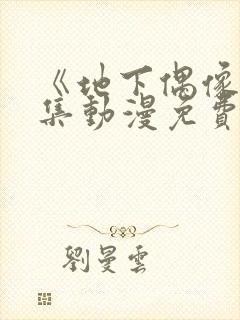 《地下偶像
集動漫免費
劉曼雲